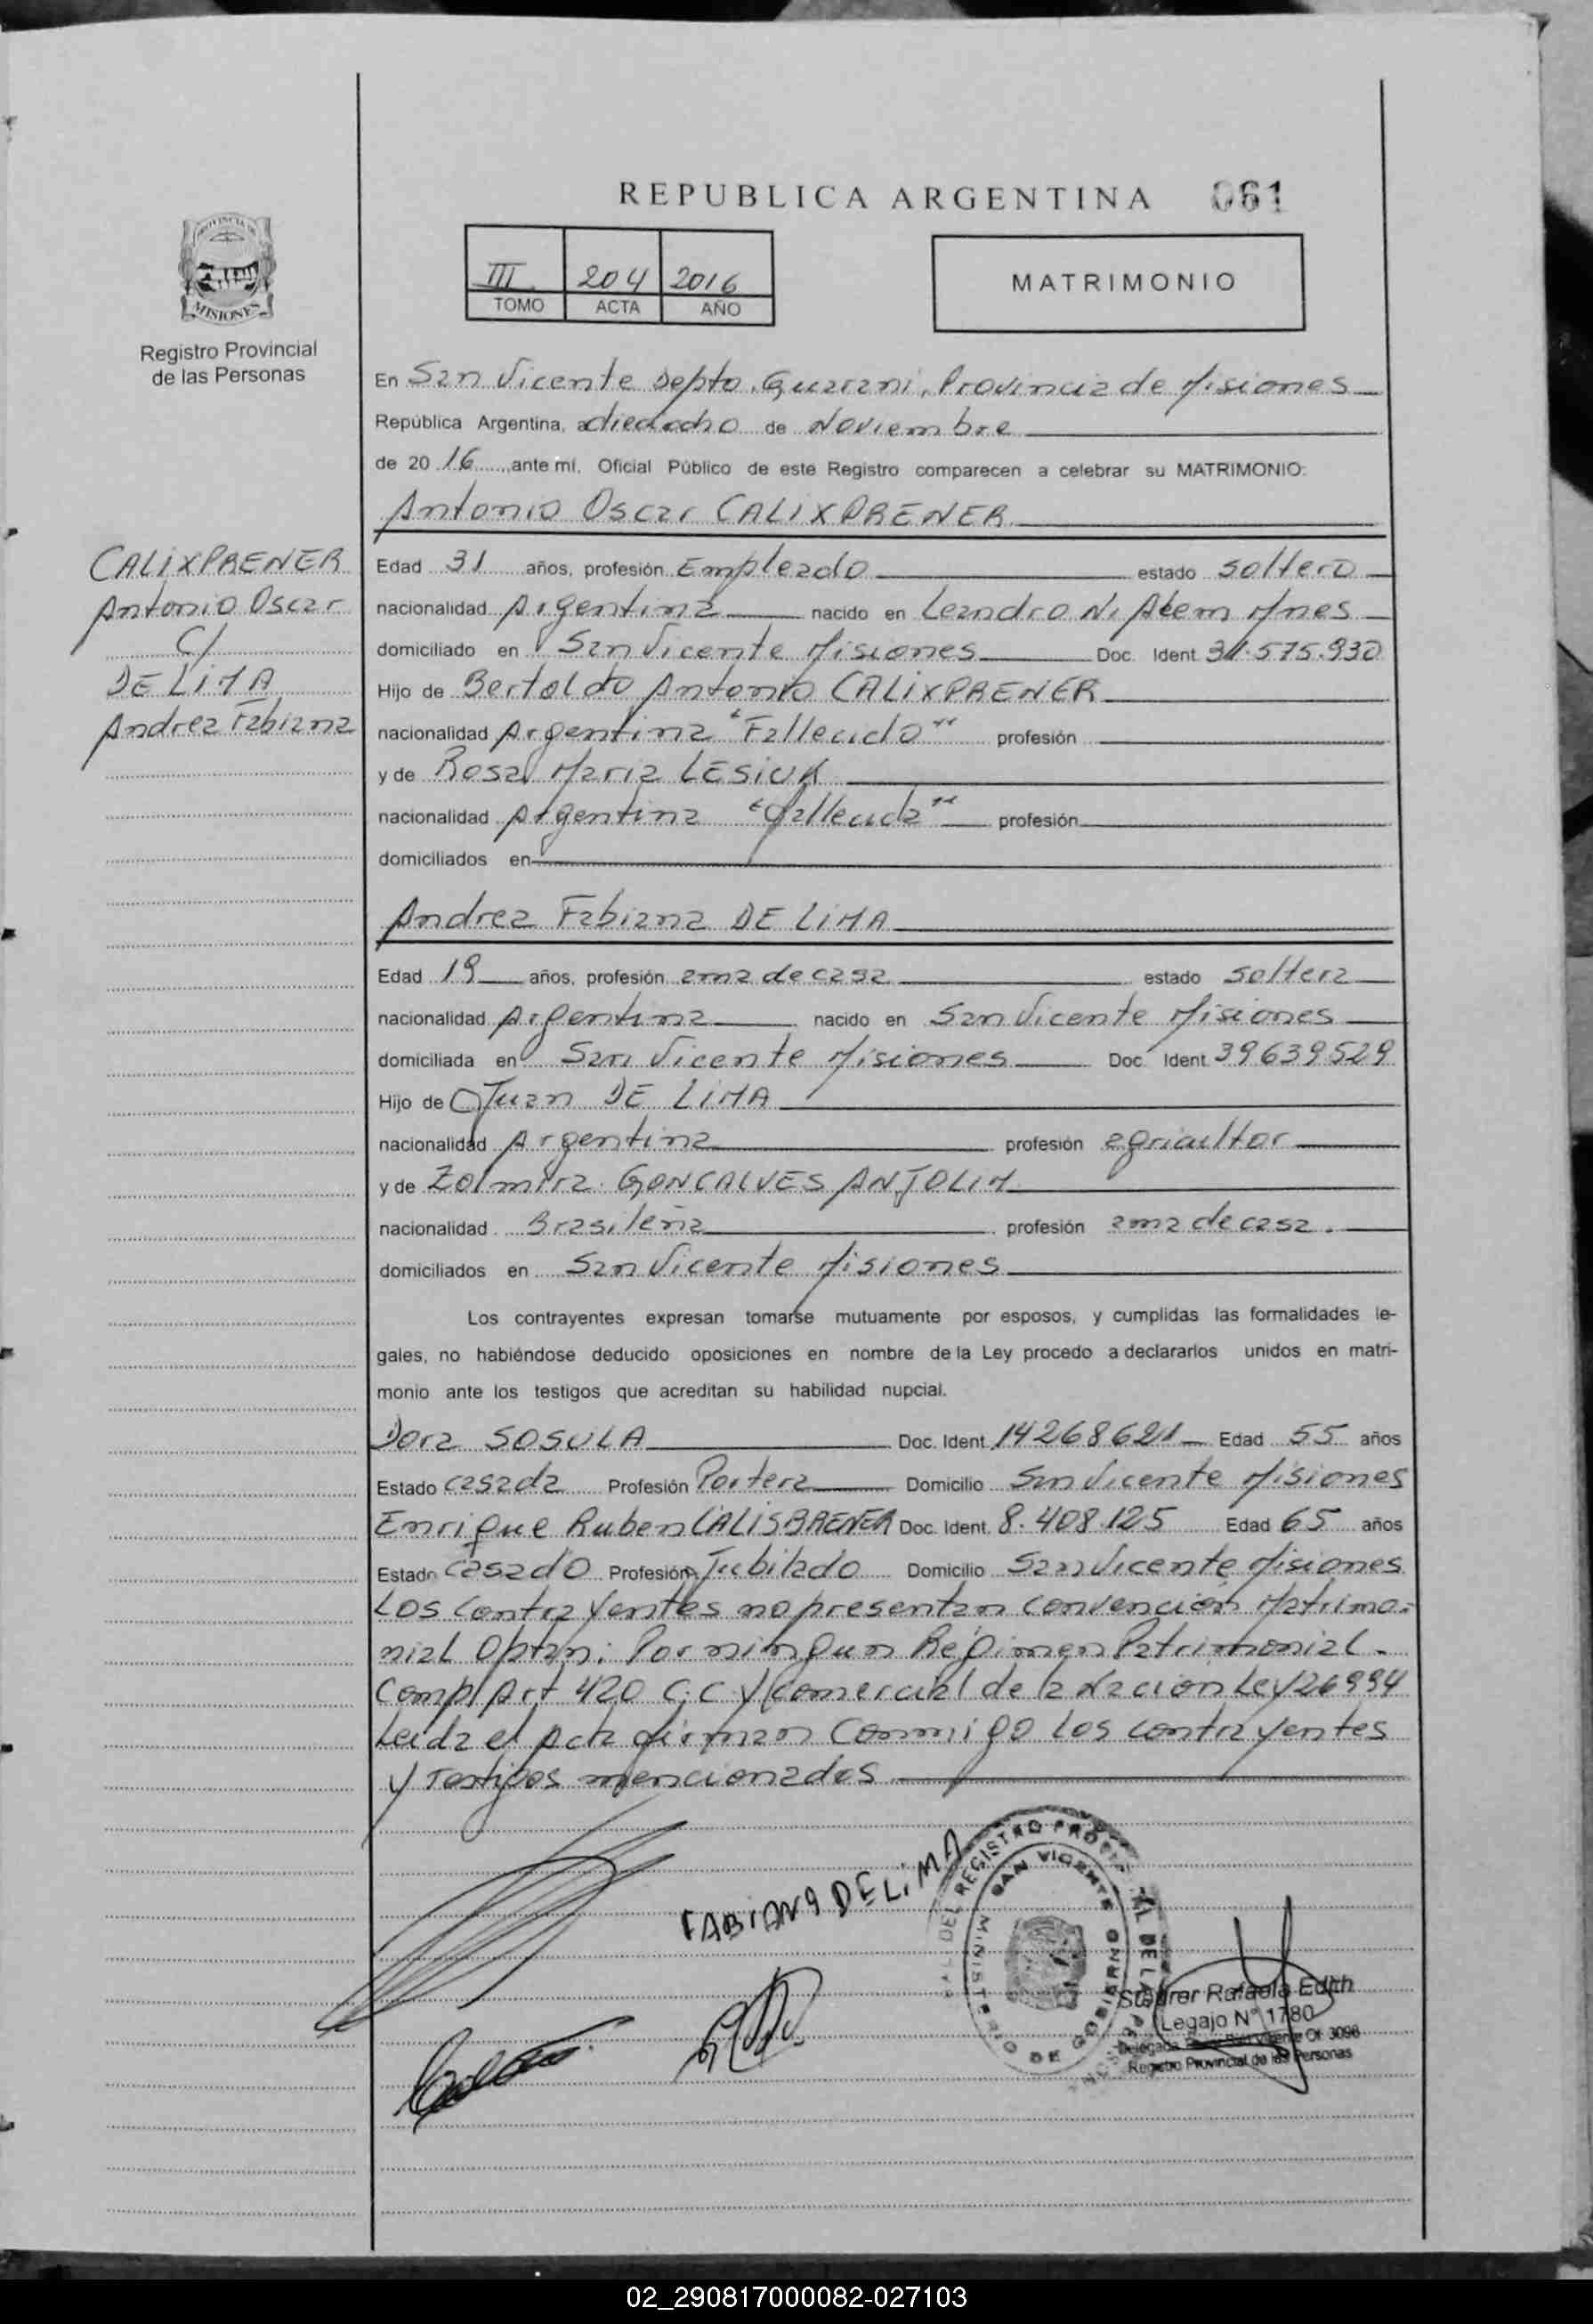 REPUBLICA ARGENTINA 061
III 204 2016
TOMO ACTA AÑO
MATRIMONIO
PROVINCIA DE
MISIONES
Registro Provincial
de las Personas
En San Vicente Depto. Guarani, Provincia de Misiones
República Argentina, a dieciocho de Noviembre
de 20 16 ,ante mí, Oficial Público de este Registro comparecen a celebrar su MATRIMONIO:
Antonio Oscar CALIXPRENER
CALIXPRENER
Antonio Oscar
C/
DE LIMA
Andrea Fabiana
Edad 31 años, profesión Empleado estado soltero
nacionalidad Argentina nacido en Leandro N. Alem Mnes
domiciliado en San Vicente Misiones Doc. Ident 31.575.930
Hijo de Bertoldo Antonio CALIXPRENER
nacionalidad Argentina "Fallecido" profesión
y de Rosa Maria LESIUK
nacionalidad Argentina "fallecida" profesión
domiciliados en
Andrea Fabiana DE LIMA
Edad 19 años, profesión ama de casa estado soltera
nacionalidad Argentina nacido en San Vicente Misiones
domiciliada en San Vicente Misiones Doc. Ident. 39639529
Hijo de Juan DE LIMA
nacionalidad Argentina profesión agricultor
y de Zolmira GONCALVES ANJOLIM
nacionalidad Brasileña profesión ama de casa.
domiciliados en San Vicente Misiones
Los contrayentes expresan tomarse mutuamente por esposos, y cumplidas las formalidades le-
gales, no habiéndose deducido oposiciones en nombre de la Ley procedo a declararlos unidos en matri-
monio ante los testigos que acreditan su habilidad nupcial.
Dora SOSULA Doc. Ident 14268621 Edad 55 años
Estado casada Profesión Portera Domicilio San Vicente Misiones
Enrique Ruben CALISBRENER Doc. Ident. 8.408.125 Edad 65 años
Estado casado Profesión Jubilado Domicilio San Vicente Misiones
Los Contrayentes no presentan convención Matrimo-
nial Optan: Por ningun Régimen Patrimonial.
Comp/Art 420 C.C y Comercial de la Nacion Ley 26994
Leida el Acta firman Conmigo los contrayentes
y Testigos mencionados
FABIANA DE LIMA
DEL REGISTRO
SAN VICENTE
MINISTERIO DE GOBIERNO
Rafaela Edith
Legajo N° 1780
Delegada Of. 3098
Registro Provincial de las Personas
02_290817000082-027103